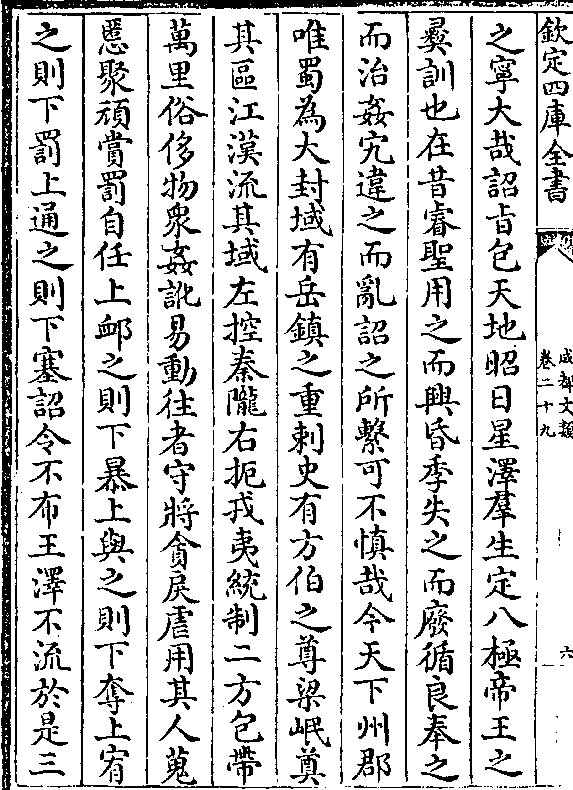 欽定四庫全書
成都文類
卷二十九
六
之寧大哉詔旨包天地昭日星澤羣生定八極帝王之
彛訓也在昔睿聖用之而興昏季失之而廢循良奉之
而治姦宄違之而亂詔之所繫可不慎哉今天下州郡
唯蜀為大封域有岳鎮之重刺史有方伯之尊梁岷奠
其區江漢流其域左控秦隴右扼戎夷統制二方包帶
萬里俗侈物衆姦訛易動往者守將貪戾虐用其人蒐
慝聚頑賞罰自任上䘏之則下暴上與之則下奪上宥
之則下罰上通之則下塞詔令不布王澤不流於是三